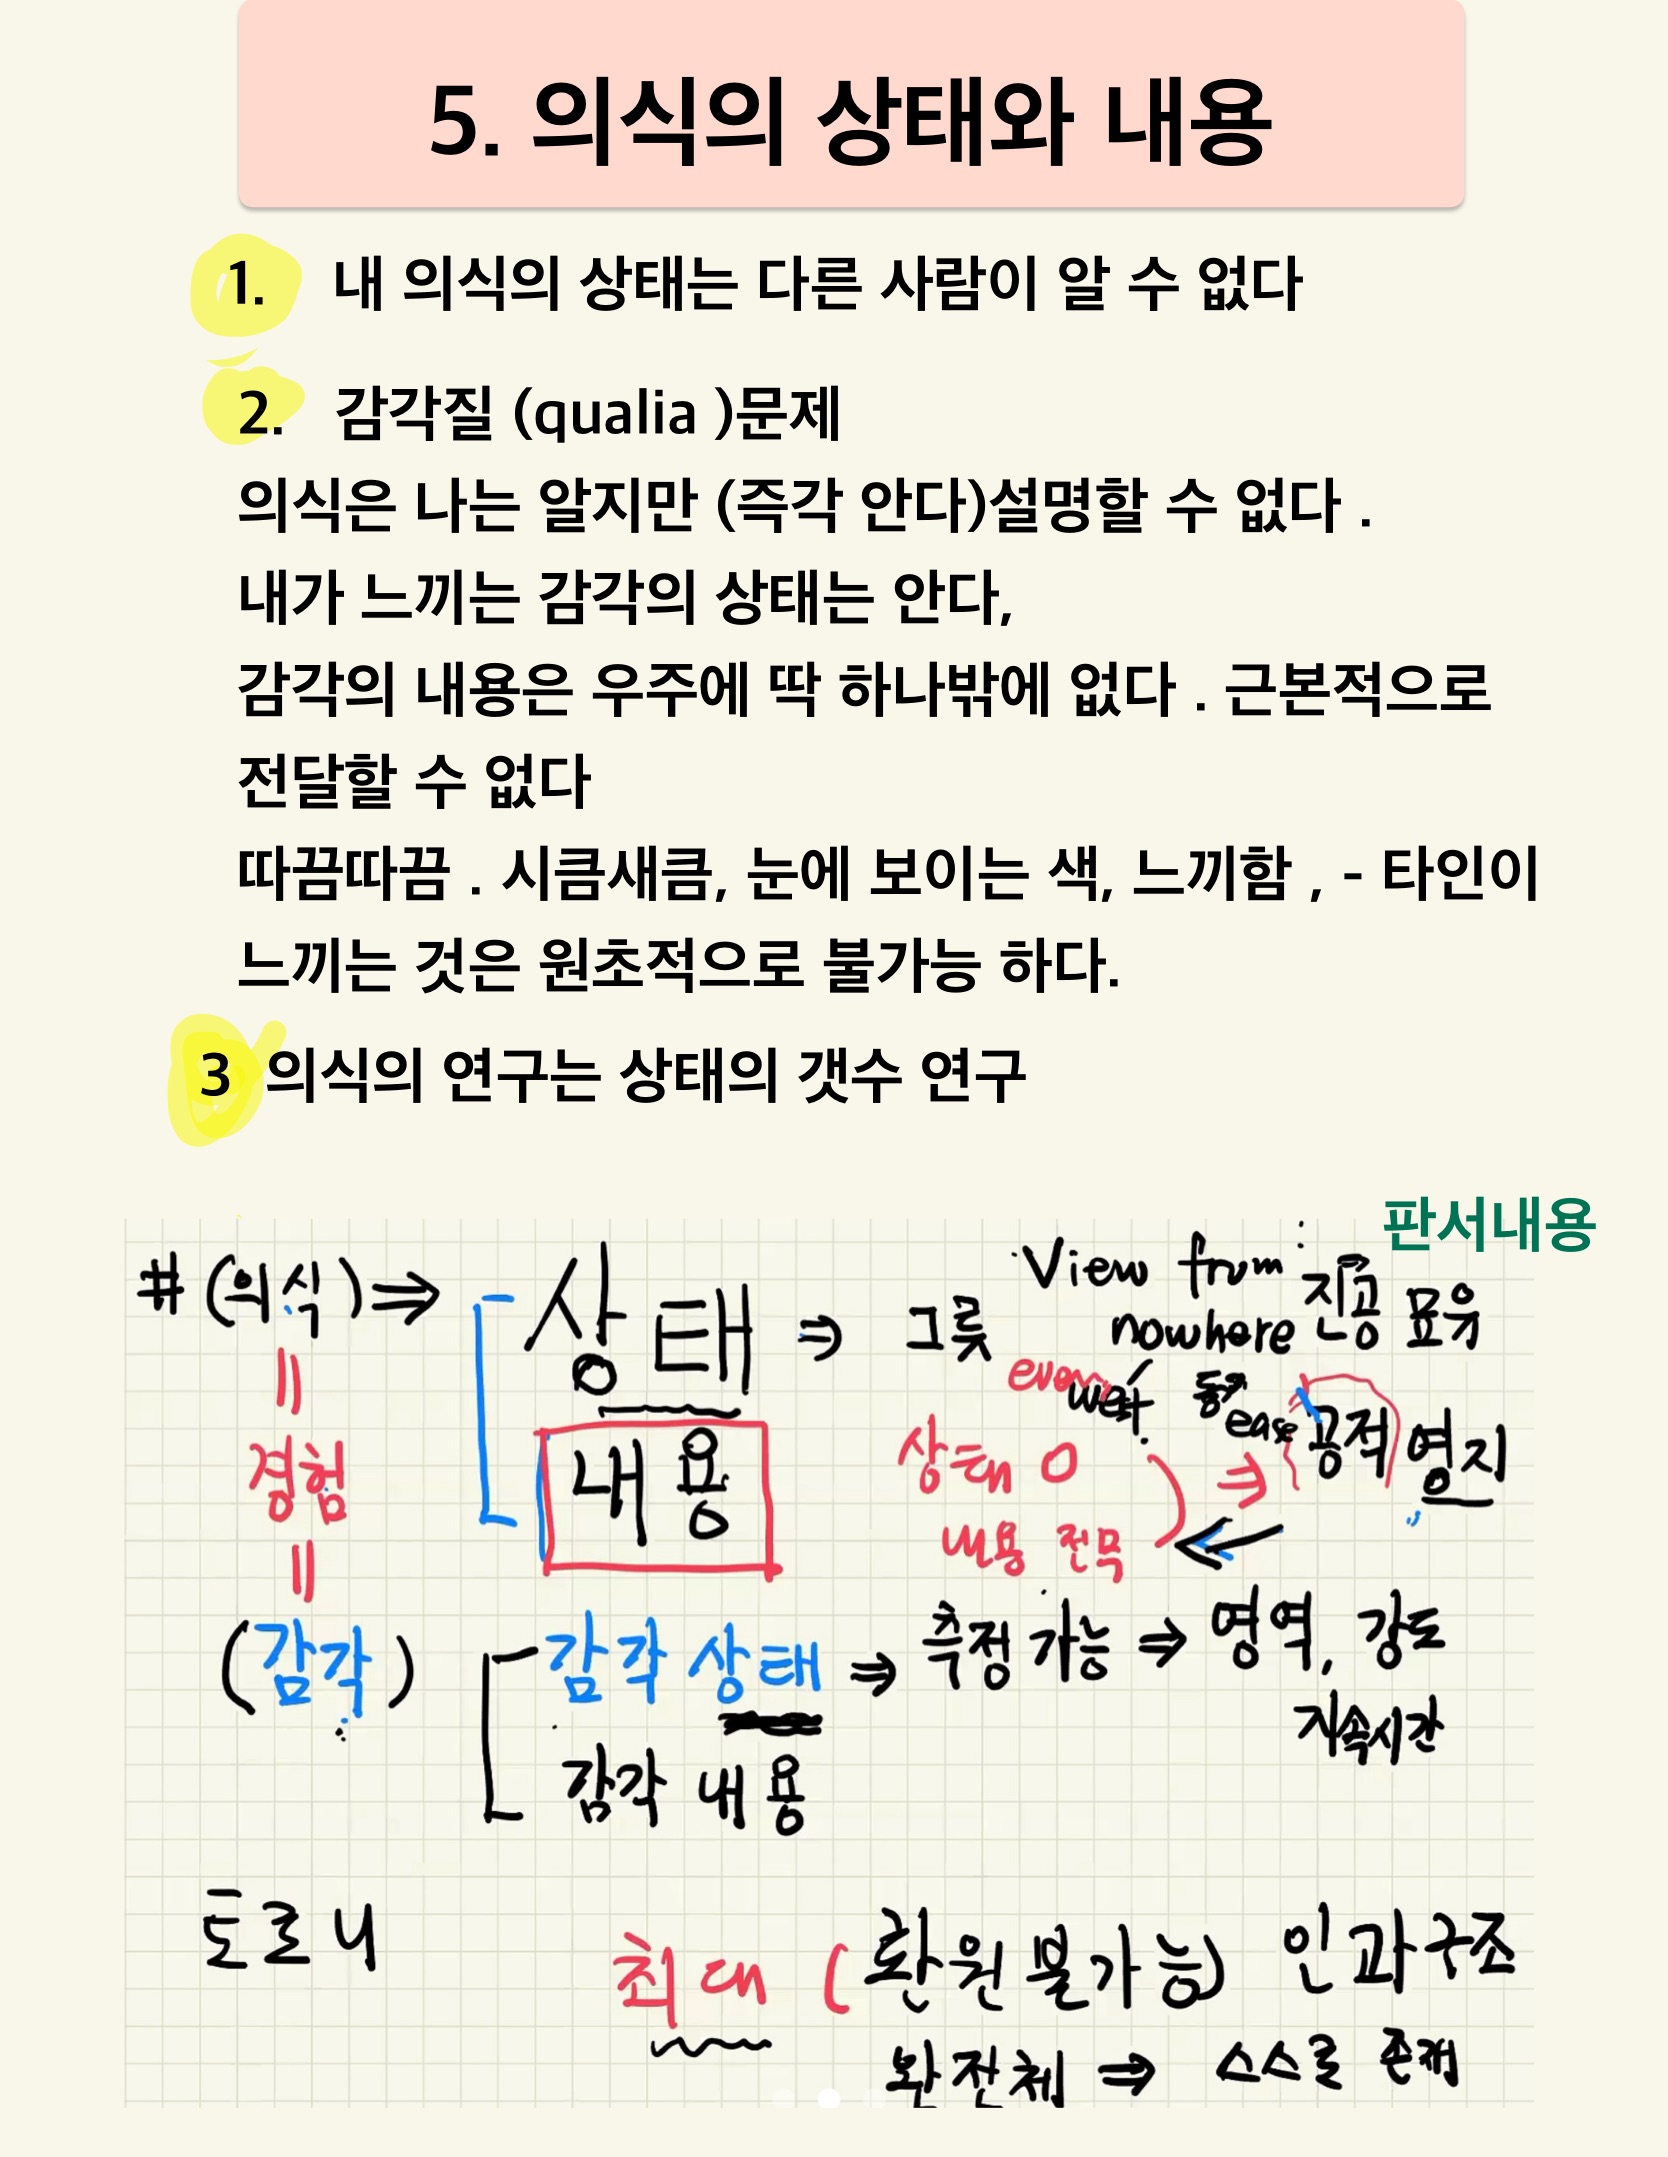 5. 의식의 상태와 내용
1. 내 의식의 상태는 다른 사람이 알 수 없다
2. 감각질 (qualia )문제
의식은 나는 알지만 (즉각 안다)설명할 수 없다 .
내가 느끼는 감각의 상태는 안다,
감각의 내용은 우주에 딱 하나밖에 없다 . 근본적으로
전달할 수 없다
따끔따끔 . 시큼새큼, 눈에 보이는 색, 느끼함 , - 타인이
느끼는 것은 원초적으로 불가능 하다.
3 의식의 연구는 상태의 갯수 연구
판서내용
# (의식) ⇒ 상태 ⇒ 그릇
View from
nowhere 진공 묘유
내용
ease 공적 영지
상태 0 ⇒
내용 전무
=
경험
=
(감각)
감각 상태 ⇒ 측정 가능 ⇒ 영역, 강도
지속시간
감각 내용
토로니
최대 (환원불가능) 인과구조
완전체 ⇒ 스스로 존재